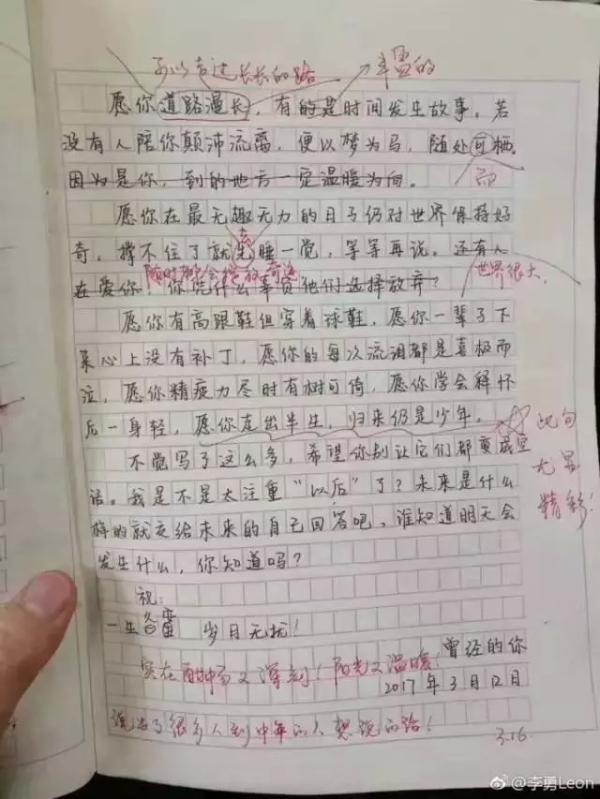 可以走过长长的路 丰盈的
愿你道路漫长，有的是时间发生故事。若
没有人陪你颠沛流离，便以梦为马，随处可栖。
因为是你，到的地方一定温暖为向。
而
愿你在最无趣无力的日子仍对世界保持好
奇。撑不住了就先睡一觉，等等再说。还有人
去
随时都会绽放奇迹 世界很大
在爱你，你凭什么辜负他们选择放弃？
愿你有高跟鞋但穿着球鞋，愿你一辈子下
来心上没有补丁，愿你的每次流泪都是喜极而
泣，愿你精疲力尽时有树可倚，愿你学会释怀
后一身轻，愿你走出半生，归来仍是少年。 此句
不觉写了这么多，希望你别让它们都变成空 尤显
话。我是不是太注重“以后”了？未来是什么 精彩！
样的就交给未来的自己回答吧，谁知道明天会
发生什么，你知道吗？
祝：
一生 岁月无扰！
曾经的你
实在 又深刻！阳光又温暖！
2017年3月12日
说出了很多人到中年的人想说的路！
3.16
@李勇Leon